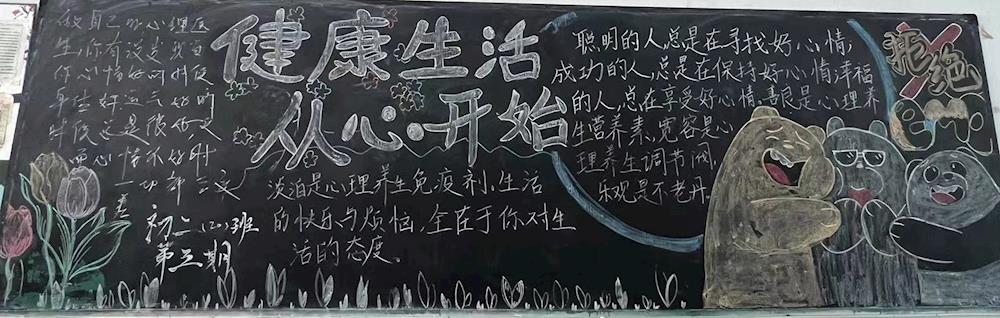 做自己的心理医
生，你有没是我当
你心情好时时候
身体好运气好的
时候总是很好又
而心情不好时
一切都三文
初二（20）班
第三期
健康生活
从心开始
淡泊是心理养生免疫剂，生活
的快乐与烦恼，全在于你对生
活的态度。
聪明的人总是在寻找好心情，
成功的人，总是在保持好心情，幸福
的人，总在享受好心情，善良是心理养
生营养素，宽容是心
理养生调节阀，
乐观是不老丹。
拒绝
emo